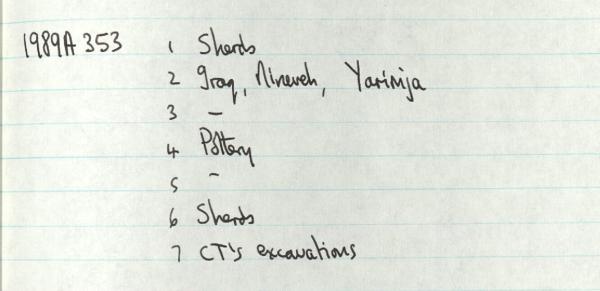 1989A 353 1 Sherds
2 Iraq, Nineveh, Yarimja
3 –
4 Pottery
5 –
6 Sherds
7 CT's excavations